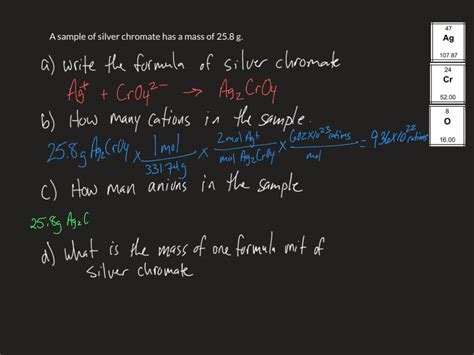 A sample of silver chromate has a mass of 25.8 g.
a) write the formula of silver chromate
Ag⁺ + CrO₄²⁻ → Ag₂CrO₄
b) How many cations in the sample.
25.8g Ag₂CrO₄ × 1 mol / 331.74g × 2 mol Ag⁺ / mol Ag₂CrO₄ × 6.02×10²³ cations / mol = 9.36×10²² cations
c) How man anions in the sample
25.8g Ag₂C
d) What is the mass of one formula unit of
silver chromate
47
Ag
107.87
24
Cr
52.00
8
O
16.00